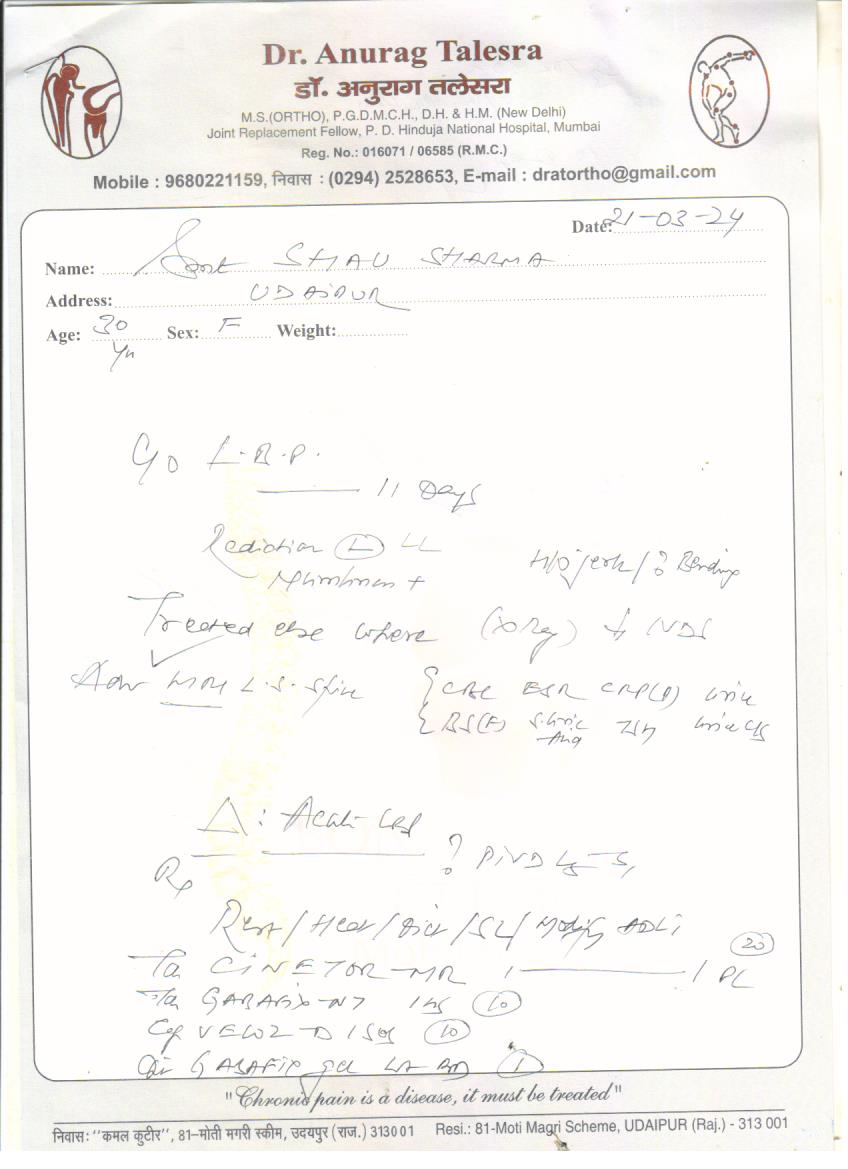 Dr. Anurag Talesra
डॉ. अनुराग तलेसरा
M.S.(ORTHO), P.G.D.M.C.H., D.H. & H.M. (New Delhi)
Joint Replacement Fellow, P. D. Hinduja National Hospital, Mumbai
Reg. No.: 016071 / 06585 (R.M.C.)
Mobile : 9680221159, निवास : (0294) 2528653, E-mail : dratortho@gmail.com
Date: 21-03-24
Name: SHARMA
Address: UDAIPUR
Age: 30 Yrs Sex: F Weight:
C/O L.B.P.
11 Days
Radiation (L) LL
H/O jerk / ? Bending
Treated else where (XRay)
Adv MRI L.S. Spine
CBC ESR CRP(Q) Urine
BS(F) S. Uric Acid TSH Urine C/S
Δ: Acute LBP
? PIVD L5-S1
Rx
Rest / Heat / Diet / SL / Modify ADL
Ta CINETOR-MR 1 1 PC (20)
Ta GABAFIX-NT 1 HS (10)
Cap VELOZ-D (10)
gel (1)
"Chronic pain is a disease, it must be treated"
निवास: "कमल कुटीर", 81-मोती मगरी स्कीम, उदयपुर (राज.) 313001 Resi.: 81-Moti Magri Scheme, UDAIPUR (Raj.) - 313 001